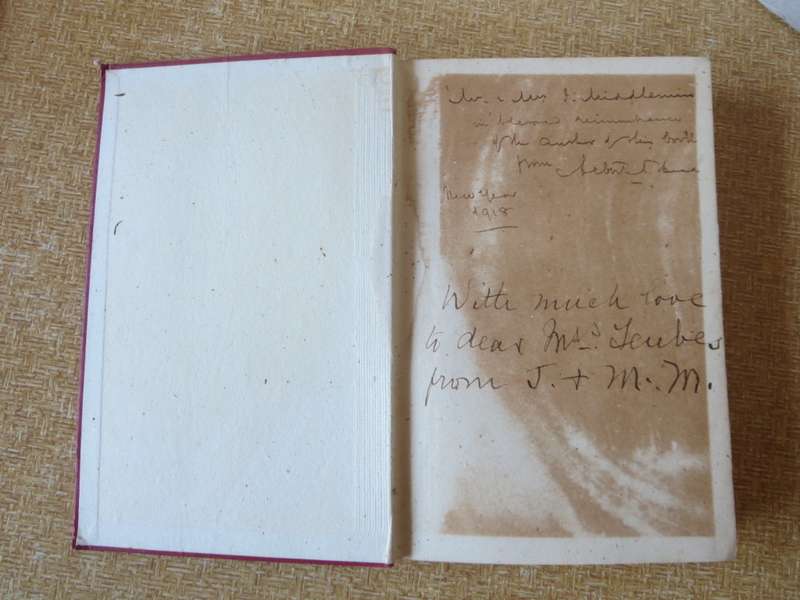 Mr. & Mrs J. Middlemiss
in blessed remembrance
of the author of this book
from
New Year
1918
With much love
to dear Mrs.
from J. & M. M.